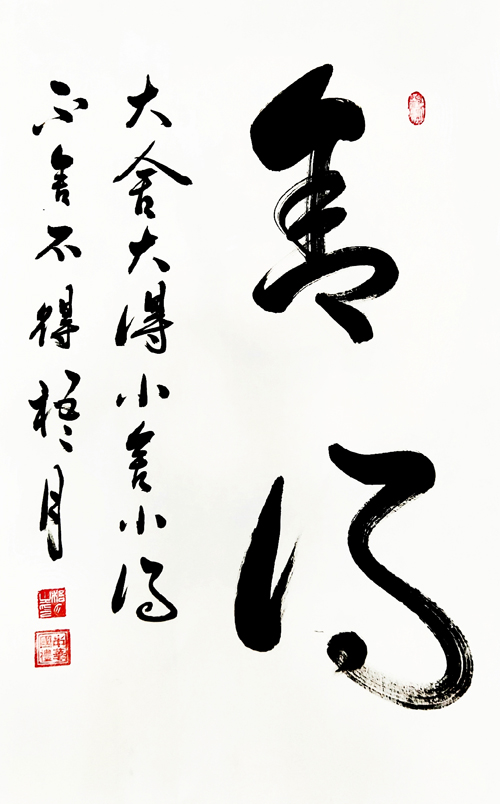 舍得
大舍大得小舍小得
不舍不得